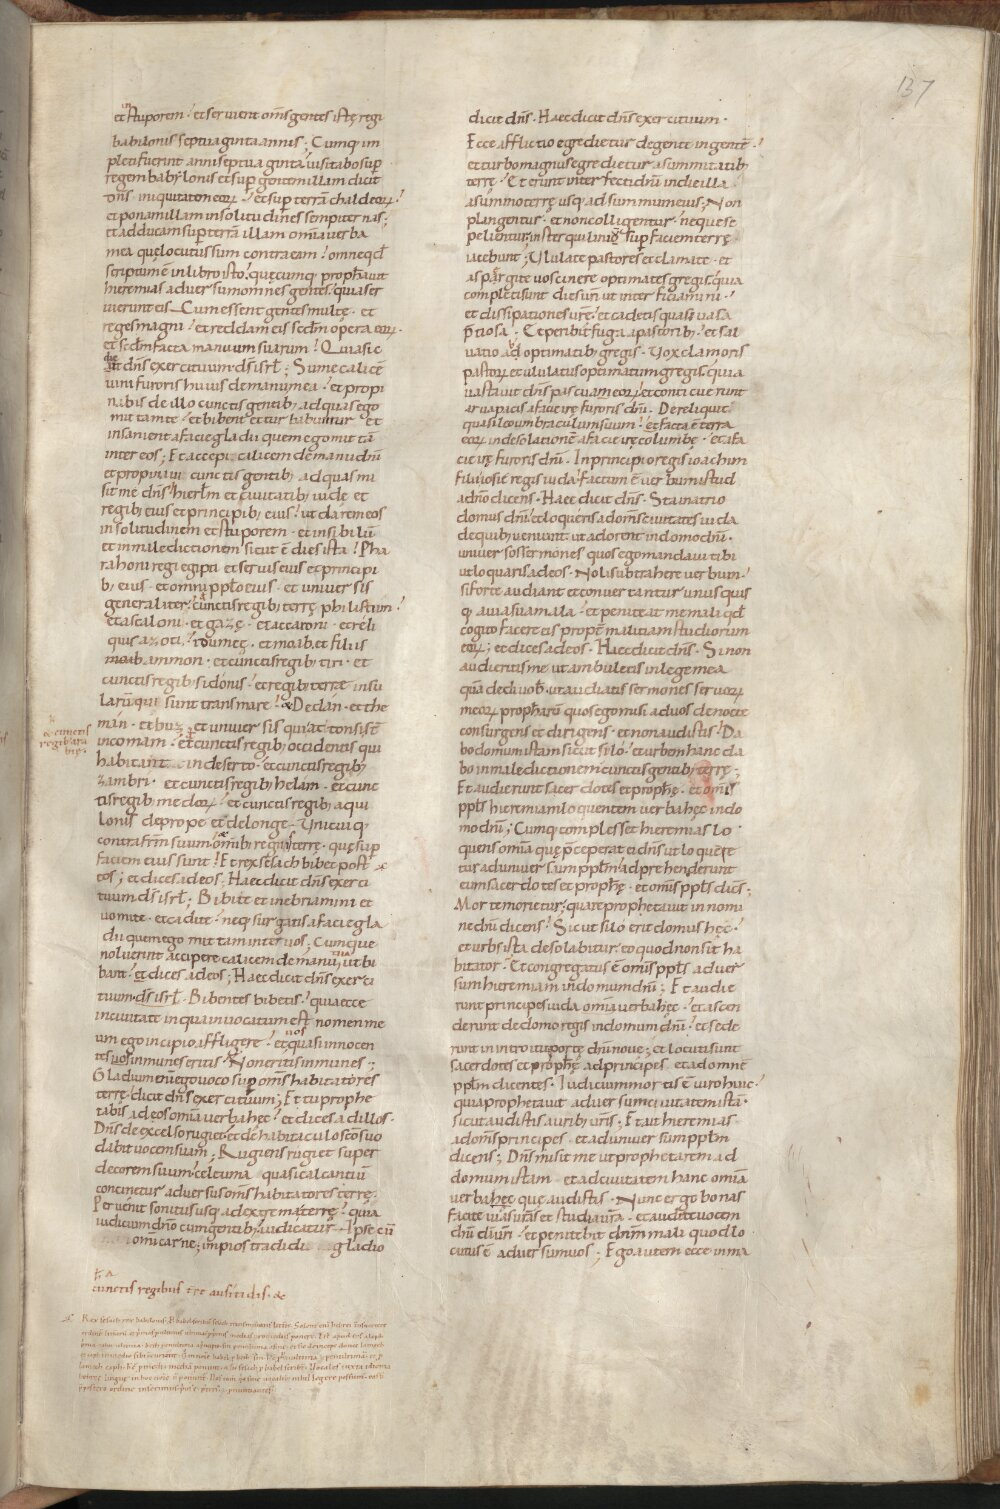 137
in
et stuporem · et servient oms gentes istę regi
babilonis septuaginta annis ; Cumq; im
pleti fuerint anni septuaginta visitabo sup
regem babylonis et sup gentem illam dicit
dns · iniquitatem eorꝝ · et sup terrā chaldeorꝝ ·
et ponam illam in solitudines sempiternas ;
et adducam sup terrā illam omia verba
mea quę locutus sum contra eam · omne qd
scriptum ē in libro isto · quęcumq; prophavit
hieremias adversum omnes gentes · quia ser
vierunt eis Cum essent gentes multę · et
reges magni · et reddam eis sedm opera eorꝝ ·
et sedm facta manuum suarum · Quia sic
dicit dns exercituum ds isrl ; Sume calicē
vini furoris huius de manu mea · et propi
nabis de illo cunctis gentib; ad quas ego
mittam te · et bibent et turbabuntur et
insanient a facie gladii quem ego mittā
inter eos ; Et accepi calicem de manu dni
et propinavi cunctis gentib; ad quas mi
sit me dns · hierlm et civitatib; iudę et
regib; eius et principib; eius · ut darem eos
in solitudinem et stuporem · et in sibilū
et in maledictionem sicut ē dies ista · Pha
rahoni regi egipti et servis eius et principi
b; eius · et omni pplo eius · et univer sis
generaliter · cunctis regib; terrę philistiim ·
et ascaloni · et gazę · et accaroni · et reli
quis azoti · idumeę · et moab · et filiis
moab ammon · et cunctis regib; tiri · et
cunctis regib; sidonis · et regib; terrae insu
larū qui sunt trans mare · & Dedan · et the
man · et buz · et univer sis qui attonsi st
in comam · et cunctis regib; occidentis qui
& cunctis
regib; ara
bię ·
habitant in deserto · et cunctis regib;
zambri · et cunctis regib; helam · et cunc
tis regib; medorꝝ · et cunctis regib; aqui
lonis de prope et de longe · Unicuiq;
contra frm suum · & omib; regnis terrę · quę sup
faciem eius sunt · Et rex sesach bibet post
eos ; et dices ad eos ; Haec dicit dns exerci
tuum ds isrl ; Bibite et inebriamini et
vomite · et cadite · neq; surgatis a facie gla
dii quem ego mittam inter vos ; Cumque
noluerint accipere calicem de manu tua ut bi
bant · et dices ad eos ; Haec dicit dns exerci
tuum ds isrl · Bibentes bibetis · quia ecce
in civitate in qua invocatum est nomen me
um ego incipio affligere · et vos quasi innocen
tes vos inmunes eritis · Non eritis inmunes ;
Gladium enī ego voco sup oms habitatores
terrę · dicit dns exercituum ; Et tu prophe
tabis ad eos omia verba hęc · et dices ad illos ·
Dns de excelso rugiet · et de habitaculo sco suo
dabit vocem suam ; Rugiens rugiet super
decorem suum · celeuma quasi calcantiū
concinetur adversus oms habitatores terrę ·
Pervenit sonitus usq; ad extrema terrę · quia
iudicium dno cum gentib; · iudicatur · Ipse cū
omi carne ; impios tradidi gladio
cunctis regibus tre ausitidis · &
dicit dns · Haec dicit dns exercituum ·
Ecce afflictio egredietur de gente in gentē ·
et turbo magnus egredietur a summitatib;
terrę · Et erunt interfecti dni in die illa
a summo terrę usq; ad summum eius ; Non
plangentur · et non colligentur · neque se
pelientur · in sterquiliniū sup faciem terrę
iacebunt ; Ululate pastores et clamate · et
aspargite vos cinere optimates gregis · quia
completi sunt dies vri ut interficiamini ·
et dissipationes vrę · et cadetis quasi vasa
ptiosa · Et peribit fuga a pastorib; · et sal
vatio ab optimatib; gregis · Vox clamoris
pastorꝝ et ululatus optimatum gregis · quia
vastavit dns pascuam eorꝝ · et conticuerunt
arva pacis a facie irę furoris dni · Dereliquit
quasi leo umbraculum suum · et facta ē terra
eorꝝ in desolationē a facie irę columbę · et a fa
cie irę furoris dni · In principio regis ioachim
filii iosię regis iuda · factum ē verbum istud
a dno dicens · Haec dicit dns · Sta in atrio
domus dni · et loqueris ad oms civitates iuda
de quib; veniunt ut adorent in domo dni ·
univer sos sermones quos ego mandavi tibi
ut loquaris ad eos · Noli subtrahere verbum ·
si forte audiant et convertantur unusquis
q; a via sua mala · et peniteat me mali qd
cogito facere eis propt malitiam studiorum
eorꝝ ; et dices ad eos · Haec dicit dns · Si non
audieritis me ut ambuletis in lege mea
quā dedi vob · ut audiatis sermones servorꝝ
meorꝝ propharū quos ego misi ad vos de nocte
consurgens et dirigens · et non audistis · Da
bo domum istam sicut silo · et urbem hanc da
bo in maledictionem cunctis gentib; terrę ;
Et audierunt sacerdotes et prophę · et omis
ppls hieremiam loquentem verba hęc in do
mo dni ; Cumq; complesset hieremias lo
quens omia quę pceperat ei dns ut loquere
tur ad univer sum pplm · adprehenderunt
eum sacerdotes et prophę · et omis ppls dicens ;
Morte morietur ; quare prophetavit in nomi
ne dni dicens · Sicut silo erit domus hęc ·
et urbs ista desolabitur · eo quod non sit ha
bitator · Et congregatus ē omis ppls adver
sum hieremiam in domum dni ; Et audie
runt principes iuda omia verba hęc · et ascen
derunt de domo regis in domum dni · et sede
runt in introitu portę dni novę ; et locuti sunt
sacerdotes et prophę ad principes et ad omnē
pplm dicentes · Iudicium mortis ē viro huic ·
quia prophetavit adversum civitatem istā ·
sicut audistis aurib; vris ; Et ait hieremias
ad oms principes et ad univer sum pplm
dicens ; Dns misit me ut prophetarem ad
domum istam et ad civitatem hanc omia
verba hęc quę audistis · Nunc ergo bonas
facite vias vras et studia vra · et audite vocem
dni di vri · et penitebit dnm mali quod lo
cutus ē adversum vos ; Ego autem ecce in ma